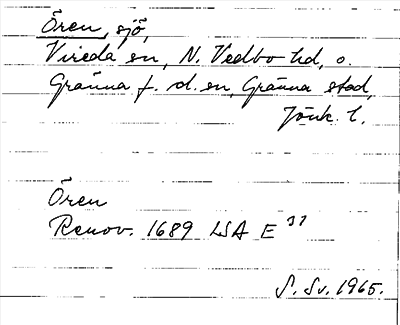 Ören, sjö,
Vireda sn, N. Vedbo hd, o.
Gränna f. d. sn, Gränna stad,
Jönk. l.
Ören
Renov. 1689 LSA E 37
S. Sv. 1965.